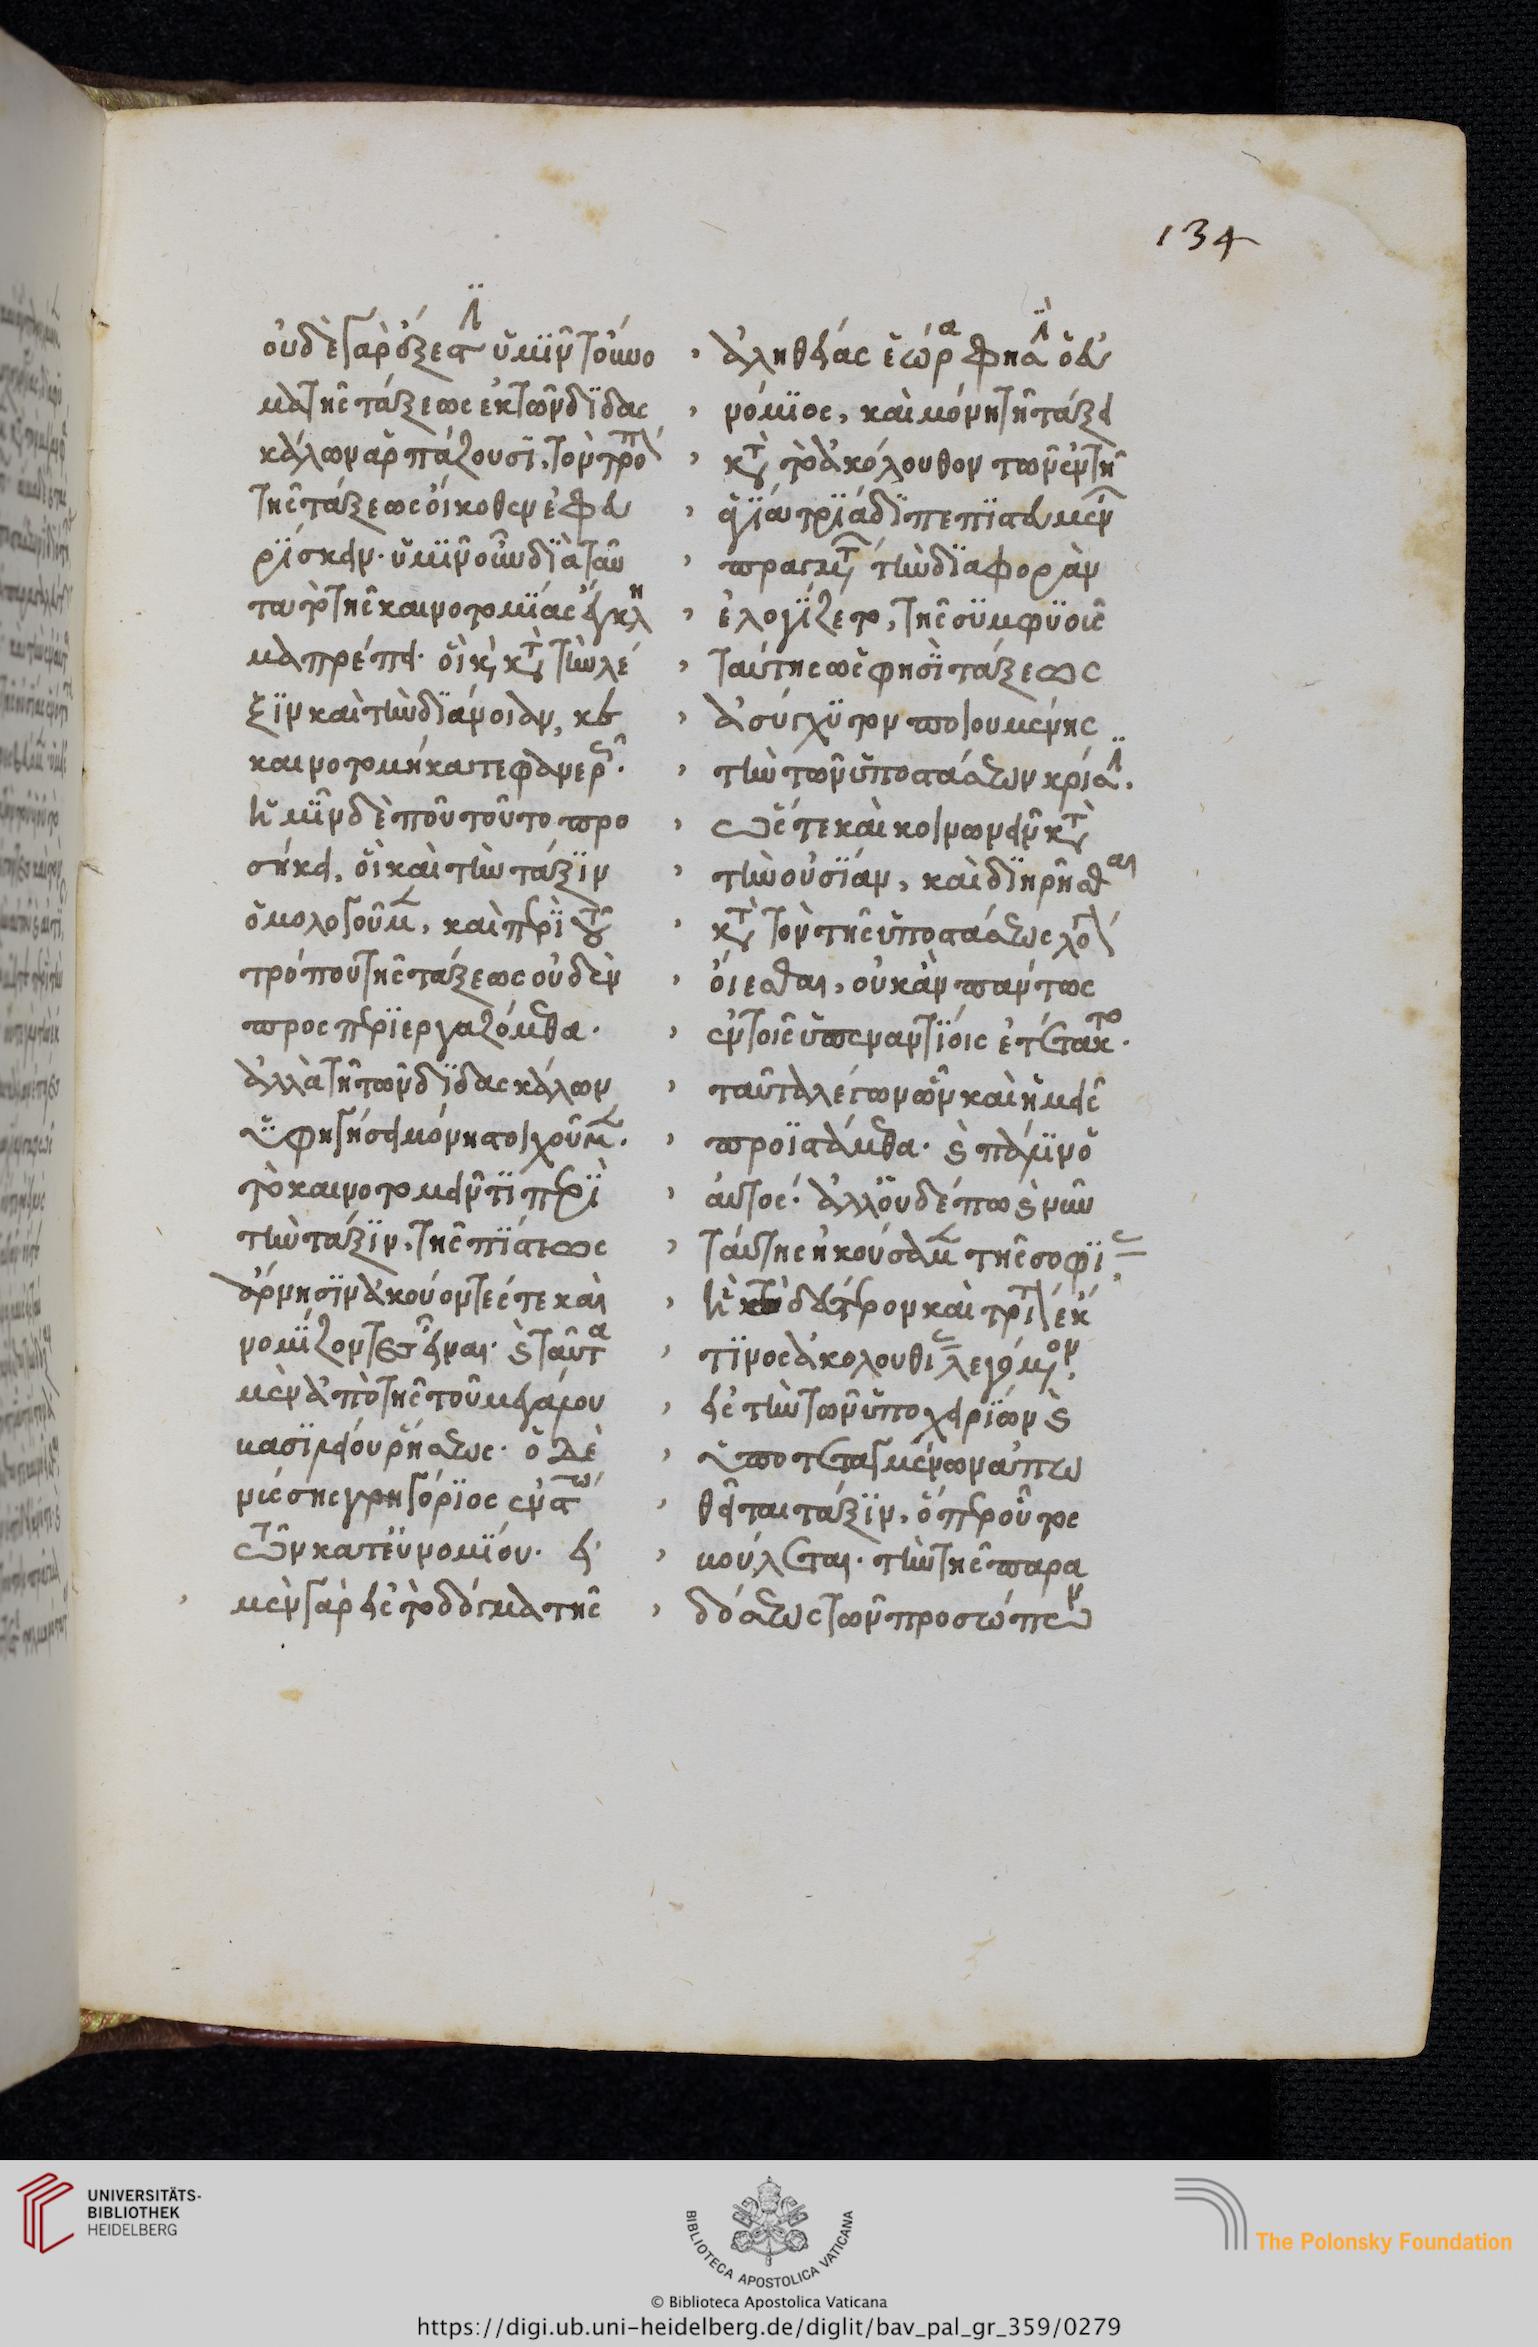 134
οὐδὲ γὰρ ἔξεστιν ὑμῖν τοὔνο
μα τῆς τάξεως ἐκ τῶν διδασ
κάλων ἁρπάζουσι, τὸν τρόπον
τῆς τάξεως οἴκοθεν ἐφευ
ρίσκειν. ὑμῖν οὖν διὰ ταῦ
τα τὸ τῆς καινοτομίας ἔγκλη
μα πρέπει. οἳ καὶ κατὰ τὴν λέ
ξιν καὶ τὴν διάνοιαν,
ἡμῖν δὲ ποῦ τοῦτο προ
σήκει, οἳ καὶ τὴν τάξιν
ὁμολογοῦμεν, καὶ περὶ τοῦ
τρόπου τῆς τάξεως οὐδὲν
προσπεριεργαζόμεθα.
ἀλλὰ τῇ τῶν διδασκάλων
ὑφηγήσει μόνῃ στοιχοῦμεν.
τὸ καινοτομεῖν τι περὶ
τὴν τάξιν, τῆς πίστεως
ἄρνησιν ἀκούοντές τε καὶ
νομίζοντες εἶναι. καὶ ταῦτα
μὲν ἀπὸ τῆς τοῦ μεγάλου
βασιλείου ῥήσεως. ὁ δὲ
νύσσης γρηγόριος ἐν
τῶν κατ' εὐνομίου. εἰ
μὲν γὰρ εἰς τὸ δόγμα τῆς
ἀληθείας ἑώρα φησὶν ὁ εὐ
νόμιος, καὶ μόνῃ τῇ τάξει
κατὰ τὸ ἀκόλουθον τῶν ἐν τῇ
ἁγίᾳ τριάδι πεπιστευμένων
πραγμάτων τὴν διαφορὰν
ἐλογίζετο, τῆς συμφυοῦς
ταύτης ὥς φησι τάξεως
ἀσύγχυτον ποιουμένης
τὴν τῶν ὑποστάσεων κρίσιν.
ὥστε καὶ κοινωνεῖν κατὰ
τὴν οὐσίαν, καὶ διῃρῆσθαι
κατὰ τὸν τῆς ὑποστάσεως λόγον
οἴεσθαι, οὐκ ἂν πάντως
ἐν τοῖς ὑπεναντίοις ἐτέτακτο.
ταῦτα λέγων ὧν καὶ ἡμεῖς
προϊστάμεθα. καὶ πάλιν ὁ
αὐτός. ἀλλ' οὐδέπω καὶ νῦν
ταύτης ἠκούσαμεν τῆς σοφίας
ἣ τὸ δεύτερον καὶ τρίτον ἔκ
τινος ἀκολουθίας λεγόμενον,
εἰς τὴν τῶν ὑποχειρίων καὶ
ὑποτεταγμένων ἀπω
θεῖται τάξιν, ὅπερ οὗτος
βούλεται. τὴν τῆς παρα
δόσεως τῶν προσώπων
UNIVERSITÄTS-
BIBLIOTHEK
HEIDELBERG
BIBLIOTECA APOSTOLICA VATICANA
The Polonsky Foundation
© Biblioteca Apostolica Vaticana
https://digi.ub.uni-heidelberg.de/diglit/bav_pal_gr_359/0279